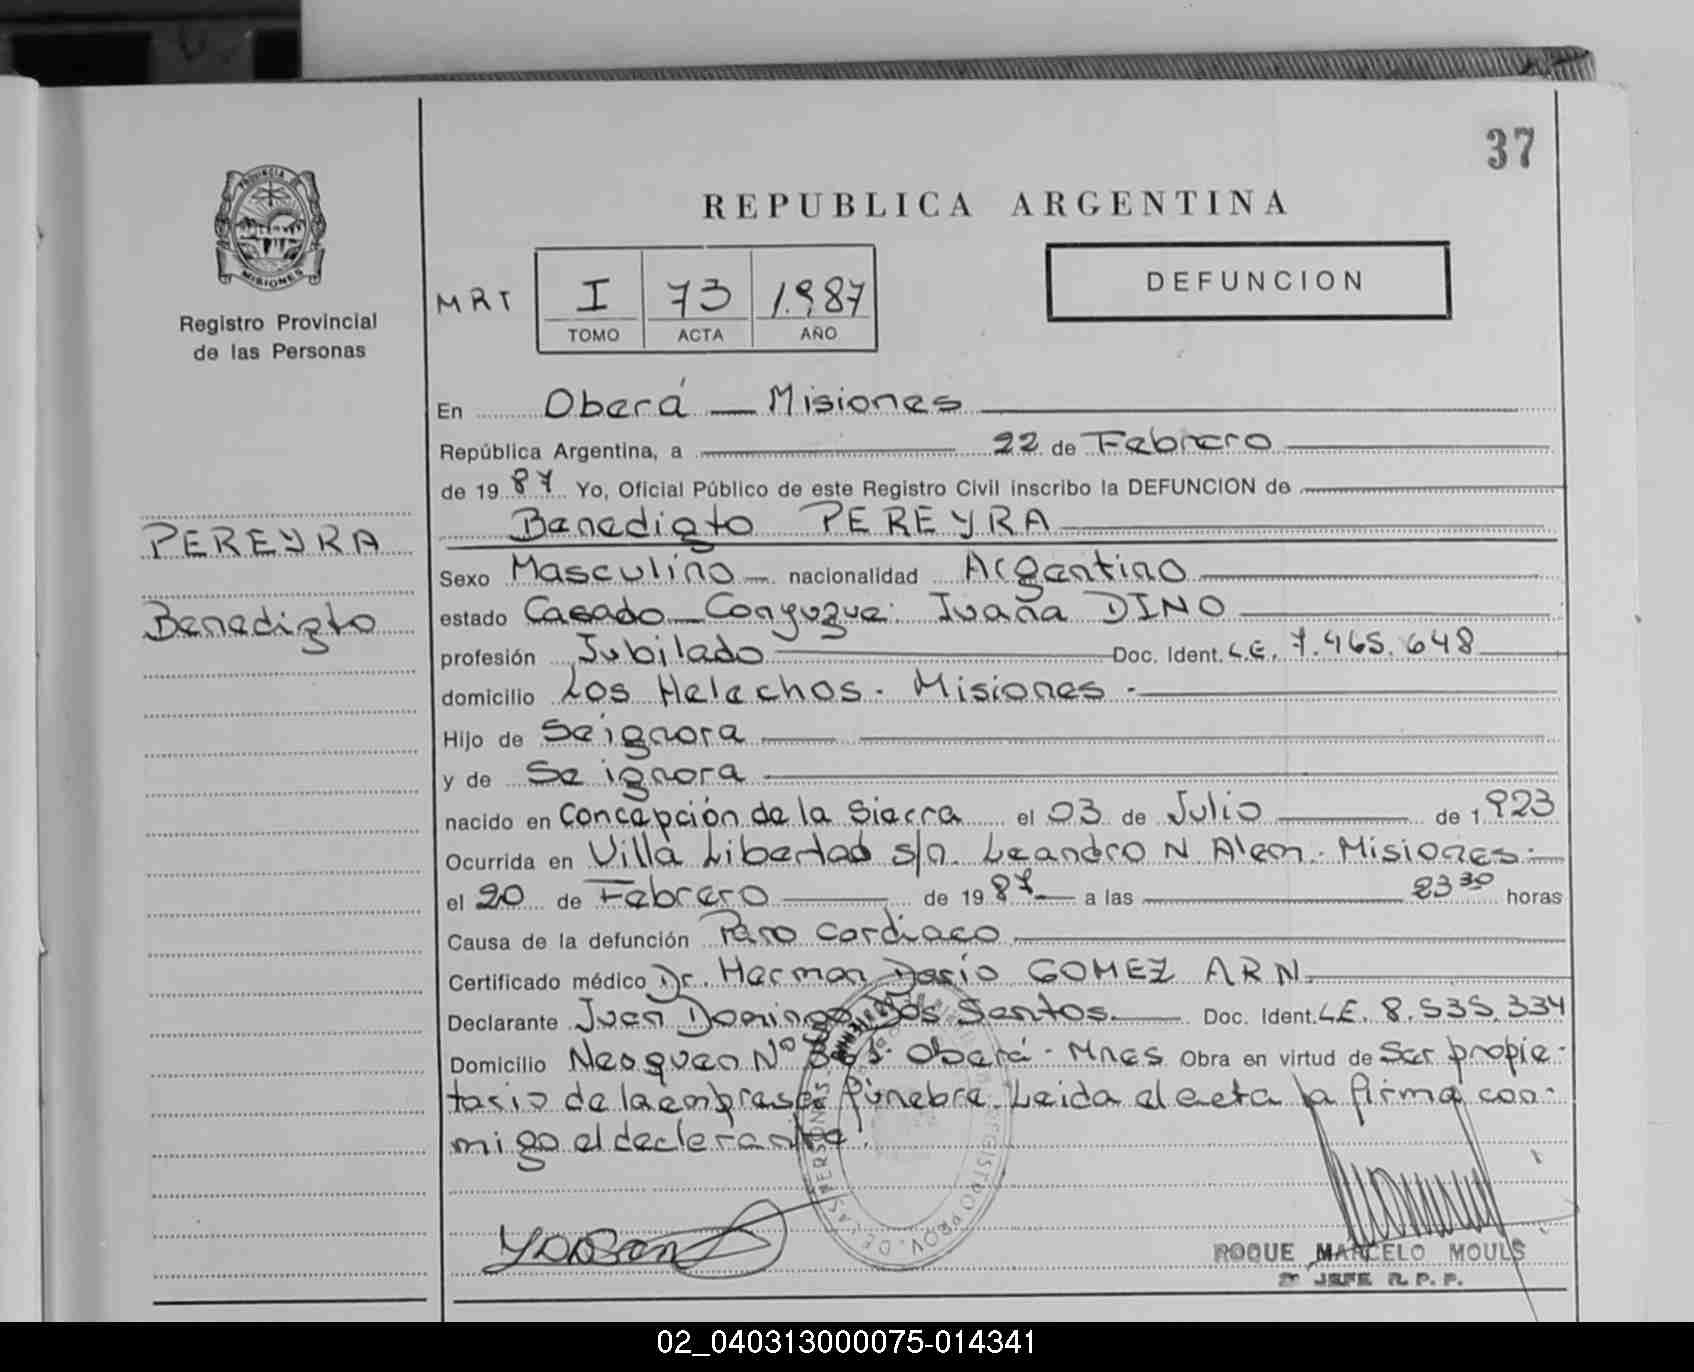 37
PROVINCIA DE
MISIONES
Registro Provincial
de las Personas
REPUBLICA ARGENTINA
MRT I 73 1.987
TOMO ACTA AÑO
DEFUNCION
PEREYRA
Benedigto
En Oberá — Misiones
República Argentina, a 22 de Febrero
de 19 87 Yo, Oficial Público de este Registro Civil inscribo la DEFUNCION de
Benedigto PEREYRA
Sexo Masculino nacionalidad Argentino
estado Casado – Conyuzue: Juana DINO
profesión Jubilado Doc. Ident. L.E. 7.465.648
domicilio Los Helechos. Misiones.
Hijo de Se ignora
y de Se ignora
nacido en Concepción de la Sierra el 03 de Julio de 1923
Ocurrida en Villa Libertad s/n. Leandro N. Alem. Misiones.
el 20 de Febrero de 19 87 a las 23 30 horas
Causa de la defunción Paro cardiaco
Certificado médico Dr. Herman Dario GOMEZ ARN.
Declarante Juan Domingo Dos Santos. Doc. Ident. L.E. 8.535.334
Domicilio Neoquen Nº Oberá - Mnes Obra en virtud de Ser propie-
tario de la empresa fúnebre. Leida el acta la firma con-
migo el declarante.
ROQUE MARCELO MOULS
2º JEFE R. P. P.
02_040313000075-014341